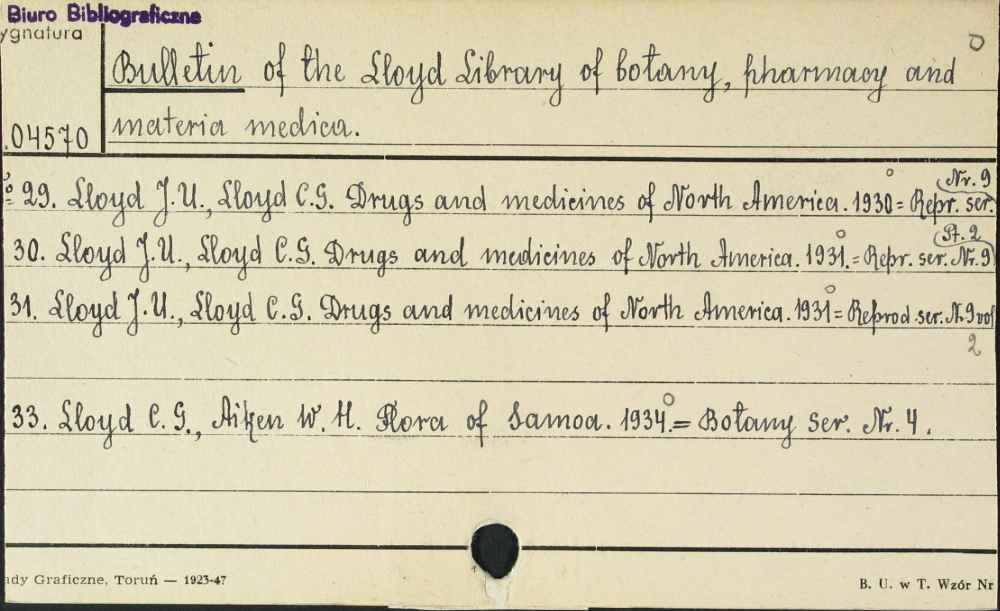 Biuro Bibliograficzne
ygnatura
Bulletin of the Lloyd Library of botany, pharmacy and
.04570 materia medica.
Nr. 9
29. Lloyd J.U., Lloyd C.G. Drugs and medicines of North America. 1930 = Repr. ser.
Pt. 2
30. Lloyd J.U., Lloyd C.G. Drugs and medicines of North America. 1931. = Repr. ser. Nr. 9
31. Lloyd J.U., Lloyd C.G. Drugs and medicines of North America. 1931 = Reprod. ser. Nr. 9 vol
2
33. Lloyd C.G., Aiken W. H. Flora of Samoa. 1934. = Botany Ser. Nr. 4.
ady Graficzne, Toruń — 1923-47
B. U. w T. Wzór Nr